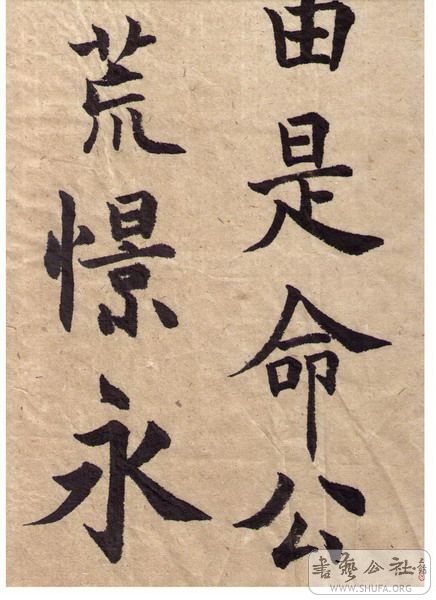 由是命公
荒憬永
書藝公社
WWW.SHUFA.ORG